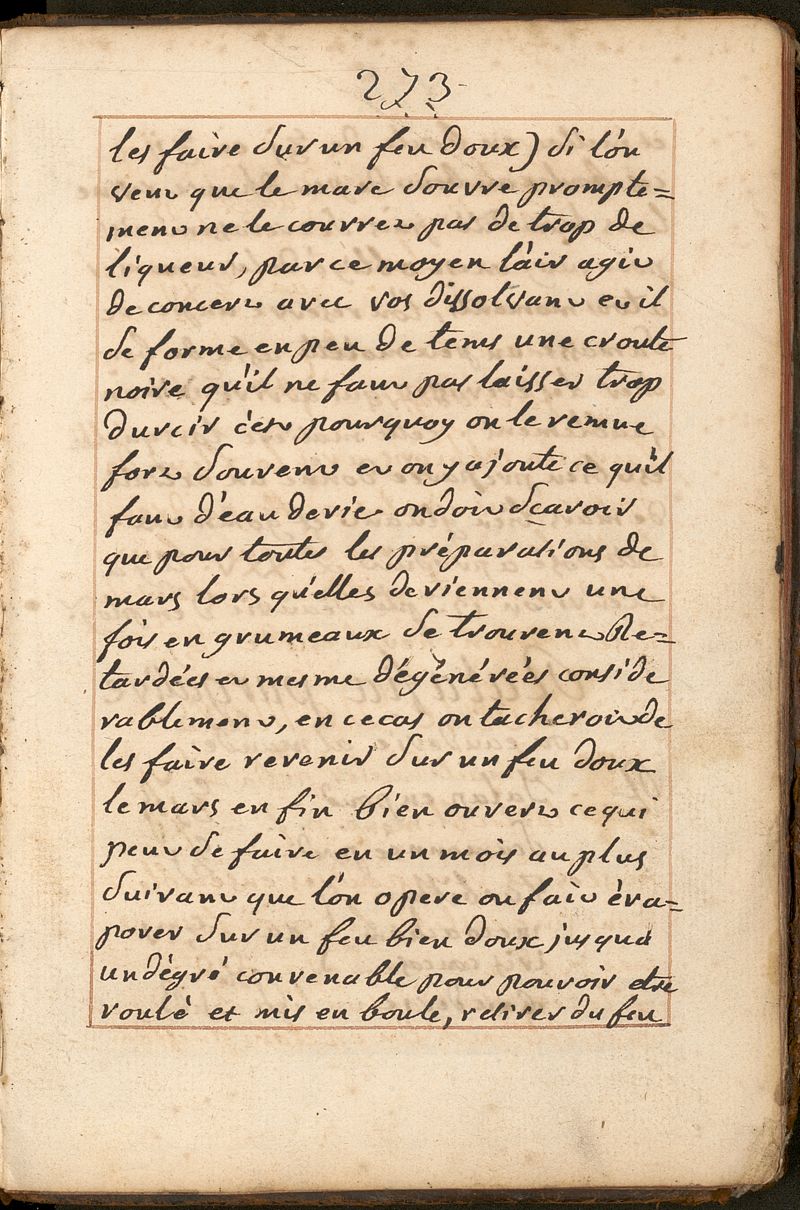 273
les faire sur un feu doux) si l'ón
veut que le mars s'ouvre prompte=
ment ne le couvrez pas de trop de
liqueur, par ce moyen l'air agit
de concert avec vos dissolvant et il
se forme en peu de tems une croute
noire qu'il ne faut pas laisser trop
durcir c'est pourquoy on le remue
fort souvent et on y ajoute ce qu'il
faut d'eau de vie on doit scavoir
que pour toutes les préparations de
mars lors qu'elles deviennent une
fois en grumeaux se trouvent Re=
tardées et mesme dégénérées conside
rablement, en ce cas on tacheroit de
les faire revenir sur un feu doux
le mars en fin bien ouvert ce qui
peut se faire en un mois au plus
suivant que l'ón opere on fait éva=
porer sur un feu bien doux jusqua
un dégré convenable pour pouvoir etre
roulé et mis en boule, retirer du feu